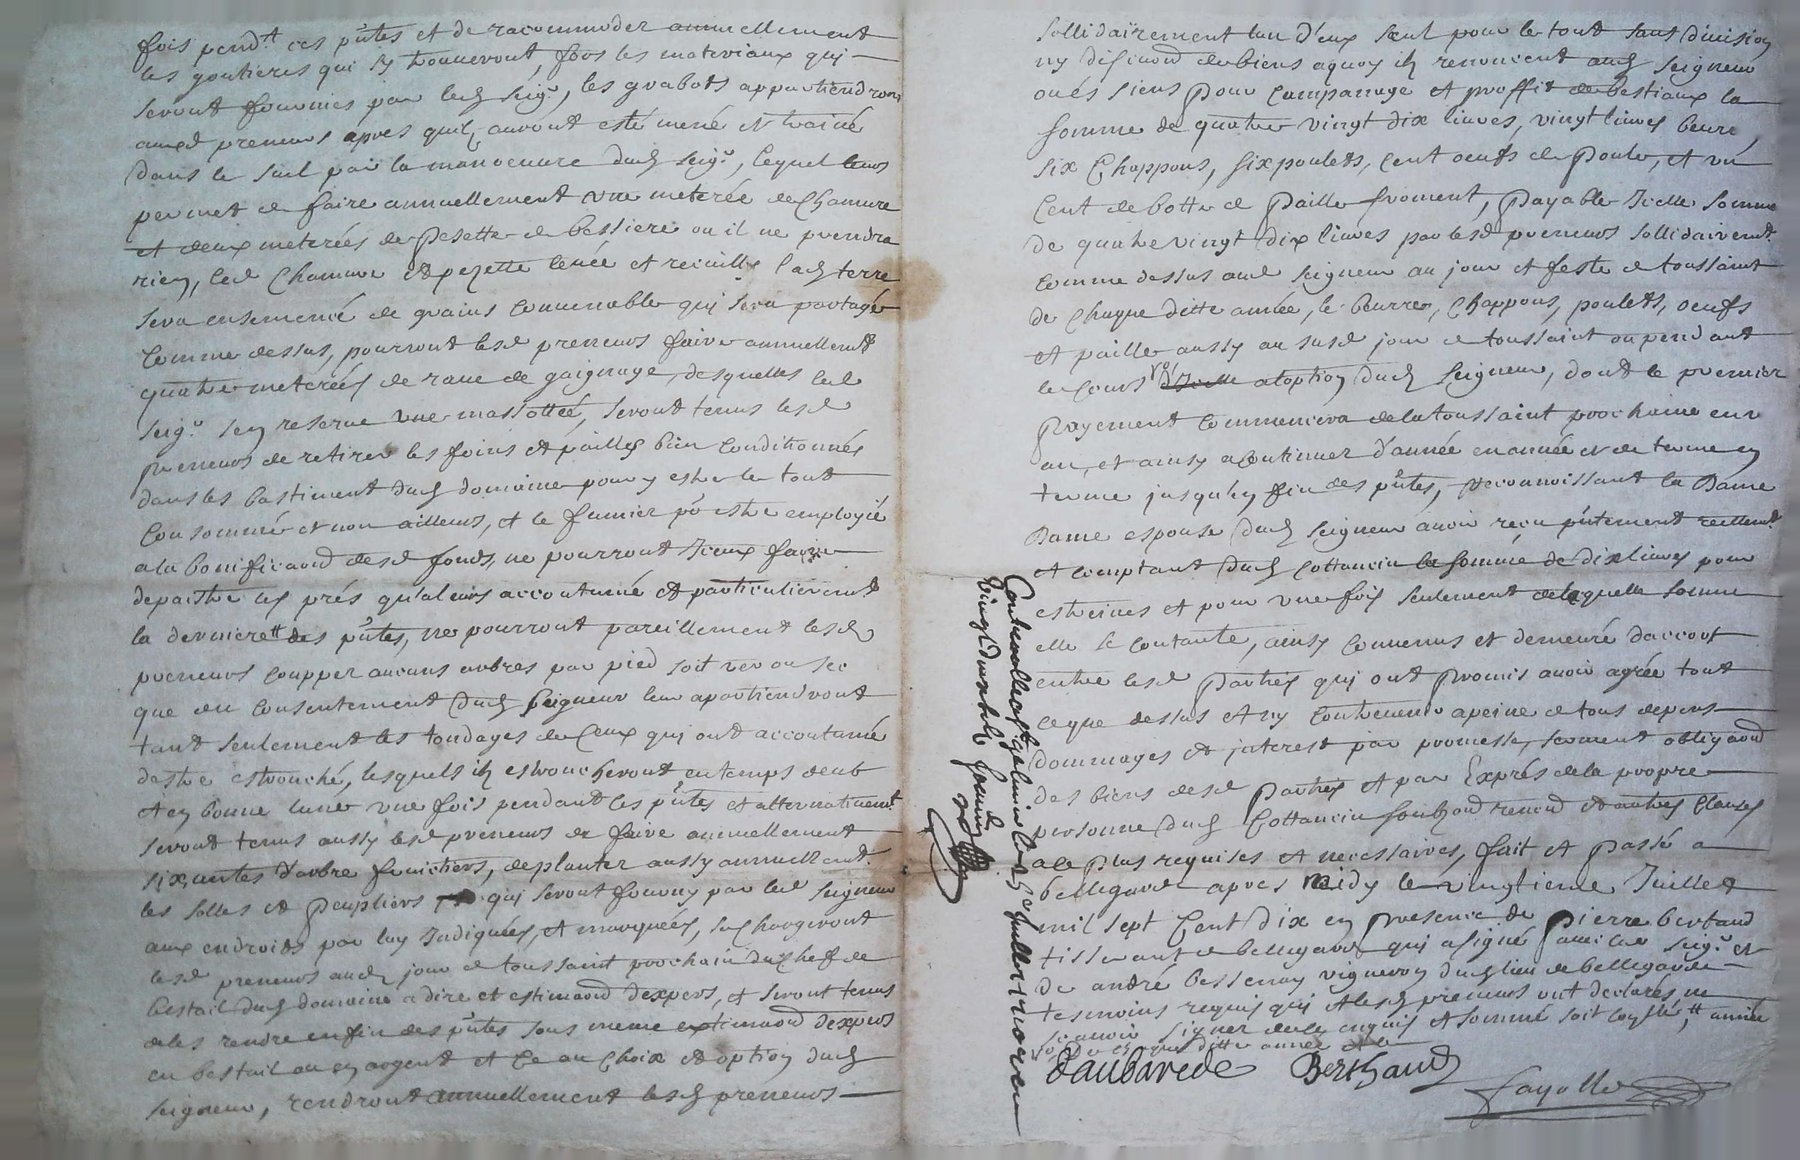 fois pend.t ces p̃ntes et de racommoder annuellement
les goutieres qui sy trouveront, fors les materiaux qui
seront fournies par led Seig.r, les grabots appartiendront
ausd preneurs apres quil auront esté mené et trainé
dans le suel par la manoeuvre dud Seig.r, lequel leurs
permet de faire annuellement une meterée de Chanvre
et deux meterées de pesette de bessiere ou il ne prendra
rien, led Chanvre et pezette levée et recuillie lad terre
sera ensemencé de grains convenable qui sera partagé
comme dessus, pourront lesd preneurs faire annuellemt
quatre meterées de rave de gaignage, desquelles led
seig.r sen reserve une massottée, seront tenus lesd
preneurs de retirer les foins et pailles bien conditionnés
dans les bastiment dud domaine pour y estre le tout
consommé et non ailleurs, et le fumier p.r estre employé
a la bonificaon desd fonds, ne pourront iceux faire
depaistre les prés qu'aleurs accoutumé et particulieremt
la derniere des p̃ntes, ne pourront pareillement lesd
preneurs coupper aucuns arbres par pied soit ver ou sec
que du consentement dud Seigneur leur apartiendront
tant seulement les tondages de ceux qui ont accoutumé
destre estrouché, lesquels ils estroucheront en temps deub
et en bonne lune une fois pendant les p̃ntes et alternativem.t
seront tenus aussy lesd preneurs de faire annuellement
six antes d'arbre fruictiers, deplanter aussy annuellemt.
les solles et peupliers qui seront fourny par led seigneur
aux endroits par luy indiquées, et marquées, se chargeront
lesd preneurs aud jour de toussaint prochain du Chef de
bestail dud domaine a dire et estimaon dexpers, et seront tenus
de les rendre en fin des p̃ntes sous meme extimaon dexpers
en bestail ou en argent et ce au choix et option dud
seigneur, rendront annuellement lesd preneurs
sollidairement lun d'eux seul pour le tout sans division
ny discuion de biens aquoy ils renoncent aud Seigneur
ou és siens pour Campanage et proffit de bestiaux la
somme de quatre vingt dix livres, vingt livres beure,
six Chappons, six poulets, Cent oeufs de poule, et un
Cent de botte de paille froment, payable icelle somme
de quatre vingt dix livres par lesd preneurs sollidairemt.
comme dessus aud seigneur au jour et feste de toussaint
de chaque ditte année, le beurre, Chappons, poulets, oeufs
et paille aussy au susd jour de toussaint ou pendant
le cours a loption dud Seigneur, dont le premier
payement commencera de la toussaint prochaine en un
an, et ainsy a continuer d'année en année et de terme en
terme jusqu'en fin des p̃ntes, reconnoissant la Dame
Dame espouse dud seigneur avoir receu p̃ntement reellemt.
et comptant dud Cottancin la somme de dix livres pour
estreines et pour une fois seulement de laquelle somme
elle se contante, ainsy convenus et demeuré daccort
entre lesd parties qui ont promis avoir agrée tout
ceque dessus et ny contrevenir apeine de tous depens
dommages et interest par promesse, serment obligaon
des biens desd parties et par Exprés de la propre
personne dud Cottancin soubzon renon et autres clauses
a ce plus requises et necessaires, fait et passé a
bellegarde apres midy le vingtieme Juillet
mil sept Cent dix en presence de pierre bertaud
tisserant de bellegarde qui a signé avec led seig.r et
de andré bessenay vigneron dud lieu de bellegarde
tesmoins requis qui et lesd preneurs ont declarés ne
scavoir signer de ce enquis et sommé
de chaque ditte année
daubarede Berthaud
fayolle